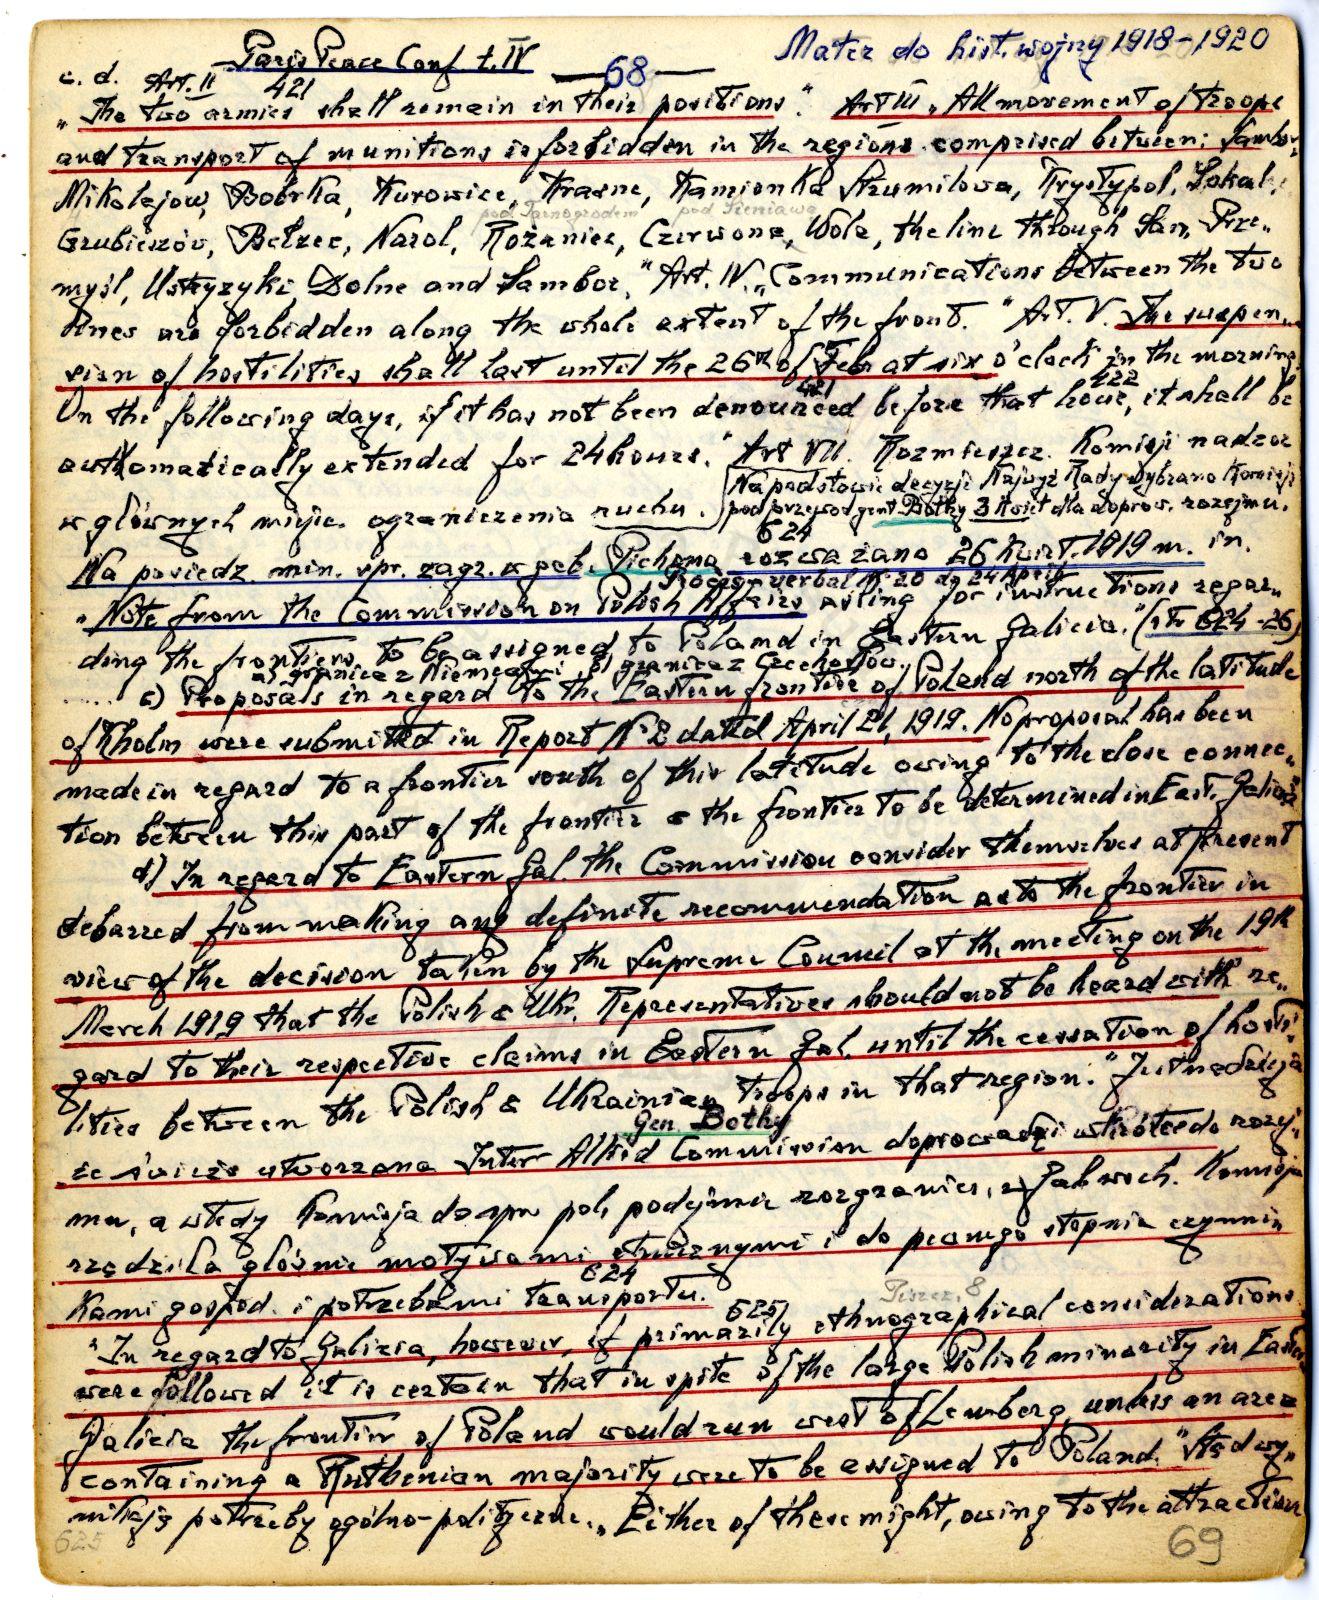 Paris Peace Conf t. IV
— 68 —
Mater do hist. wojny 1918-1920
c. d. Art. II 421
„The two armies shall remain in their positions". Art III „All movement of troops
and transport of munitions is forbidden in the regions comprised between: Sambor,
Mikolajow, Bobrka, Kurowice, Krasne, Kamionka Strumilowa, Krystypol, Sokal,
pod Tarnogrodem pod Sieniawą
Grubieszów, Bełzec, Narol, Rożaniec, Czerwona, Wola, the line through San, Prze„
myśl, Ustrzyki Dolne and Sambor." Art. IV. „Communications between the two
lines are forbidden along the whole extent of the front." Art. V. The suspen„
sion of hostilities shall last until the 26th of Febr at six o'clock in the morning
421 422
On the following days, if it has not been denounced before that hour, it shall be
authomatically extended for 24 hours." Art VII. Rozmieszcz. Komisji nadzor
w głównych miejsc. ograniczenia ruchu.
Na podstawie decyzji Najwyż Rady wybrano Komisję
pod przewod gen. Bothy 3 Kwiet dla doprow. rozejmu.
624
Na posiedz. min. spr. zagr. w gab. Pichona rozważano 26 Kwiet. 1919 m. in.
Proces-verbal № 20 do 24 April
„Note from the Commission on Polish Affairs asking for instructions regar„
ding the frontiers to be assigned to Poland in Eastern Galicia." (str 624-26)
a) granica z Niemcami b) granica z Czechosłow.
..... c) Proposals in regard to the Eastern frontier of Poland north of the latitude
of Kholm were submitted in Report № 2 dated April 21, 1919. No proposal has been
made in regard to a frontier south of this latitude owing to the close connec„
tion between this part of the frontier & the frontier to be determined in East. Galicia
d) In regard to Eastern Gal. the Commission consider themselves at present
debarred from making any definite recommendation as to the frontier in
view of the decision taken by the Supreme Council at the meeting on the 19th
March 1919 that the Polish & Ukr. Representatives should not be heard with re„
gard to their respective claims in Eastern Gal. until the cessation of hosti„
lities between the Polish & Ukrainian troops in that region." Jest nadzieja
Gen Bothy
że świeżo utworzona Inter Allied Commission doprowadzi wkrótce do rozej„
mu, a wtedy Komisja do spr pol. podejmie rozgranicz. Gal. wsch. Komisja
rządziła głównie motywami etnicznymi i do pewnego stopnia czynni„
kami gospod. i potrzebami transportu.
624
625 Piszcz. 8
"In regard to Galicia, however, if primarily ethnographical considerations
were followed it is certain that in spite of the large Polish minority in Eastern
Galicia the frontier of Poland would run west of Lemberg, unless an area
containing a Ruthenian majority were to be assigned to Poland." Stąd wy„
nikają potrzeby ogólno-polityczne. „Either of these might, owing to the attraction
625
69